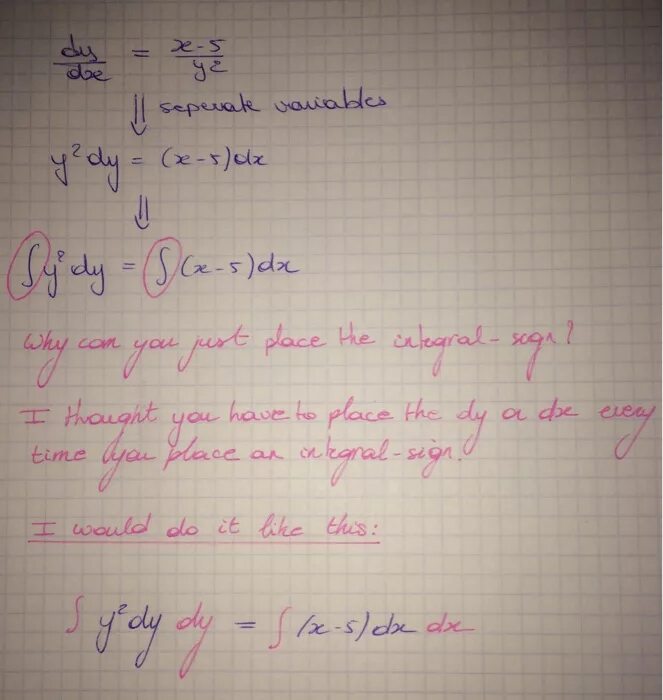 dy/dx = x-5/y²
⇓ seperate variables
y² dy = (x-5)dx
⇓
∫y² dy = ∫(x-5)dx
Why can you just place the integral-sign?
I thought you have to place the dy or dx every
time you place an integral-sign.
I would do it like this:
∫ y² dy dy = ∫ (x-5) dx dx